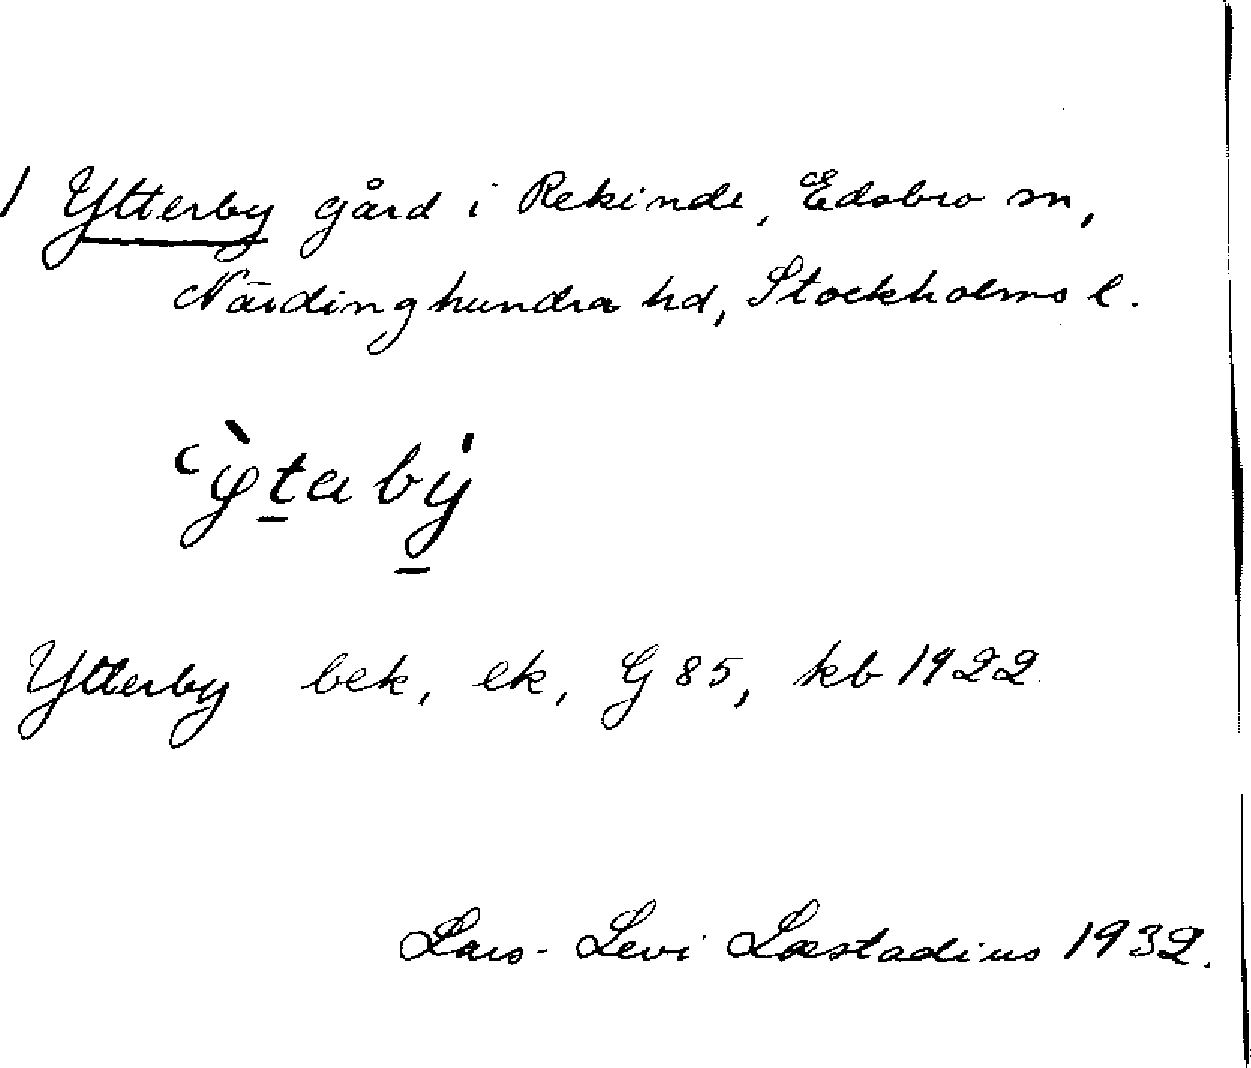 1 Ytterby gård i Rekinde, Edsbro sn,
Närdinghundra hd, Stockholms l.
`ÿtaby̍
Ytterby bek, ek, G 85, kb 1922
Lars-Levi Læstadius 1932.